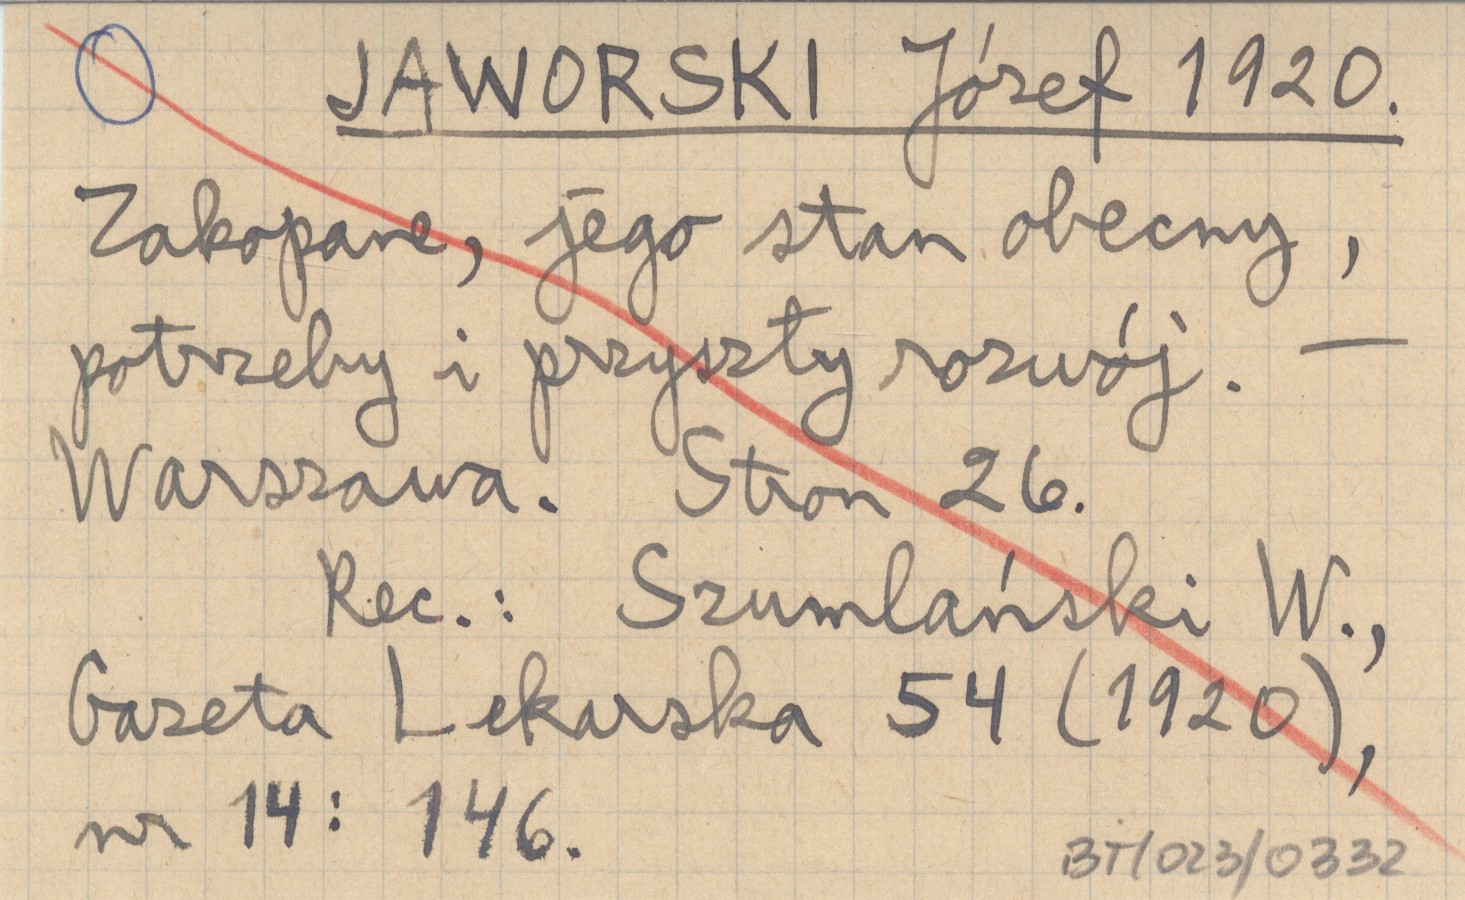 JAWORSKI Józef 1920.
Zakopane, jego stan obecny,
potrzeby i przyszły rozwój. —
Warszawa. Stron 26.
Rec.: Szumlański W.,
Gazeta Lekarska 54 (1920),
nr 14: 146.
BT/023/0332